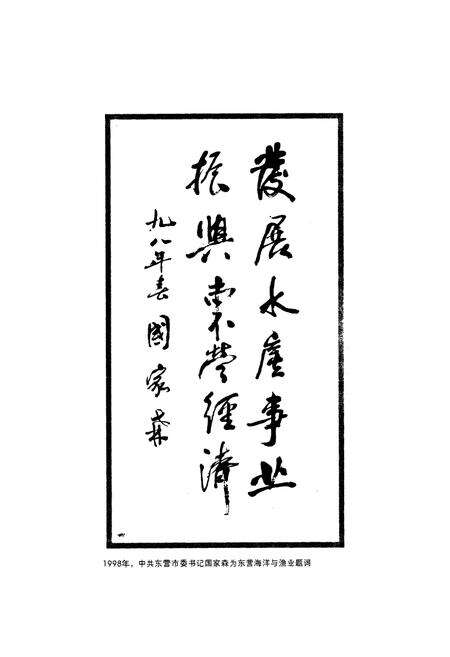 發展水產事业
振興東營經濟
九八年春 國家森
1998年，中共东营市委书记国家森为东营海洋与渔业题词